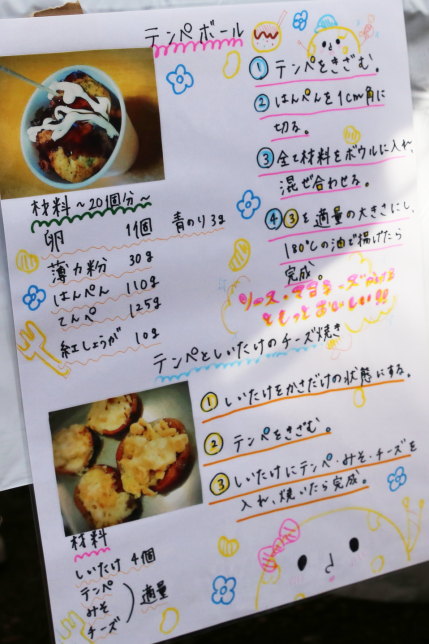 テンペボール
① テンペをきざむ。
② はんぺんを1cm角に
切る。
③ 全て材料をボウルに入れ、
混ぜ合わせる。
④ ③を適量の大きさにし、
180℃の油で揚げたら
完成。
ソース・マヨネーズかける
ともっとおいしい!!
材料 ～20個分～
卵 1個
青のり 3g
薄力粉 30g
はんぺん 110g
てんぺ 125g
紅しょうが 10g
テンペとしいたけのチーズ焼き
① しいたけをかさだけの状態にする。
② テンペをきざむ。
③ しいたけにテンペ・みそ・チーズを
入れ、焼いたら完成。
材料
しいたけ 4個
テンペ
みそ
チーズ
適量